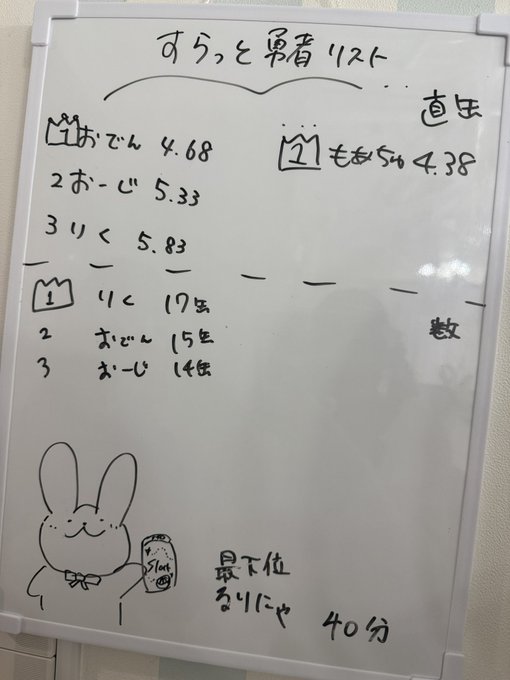 すらっと勇者リスト
直缶
1 おでん 4.68
1 ももちゅ 4.38
2 おーじ 5.33
3 りく 5.83
1 りく 17缶
数
2 おでん 15缶
3 おーじ 14缶
Slat
最下位
るりにゃ 40分